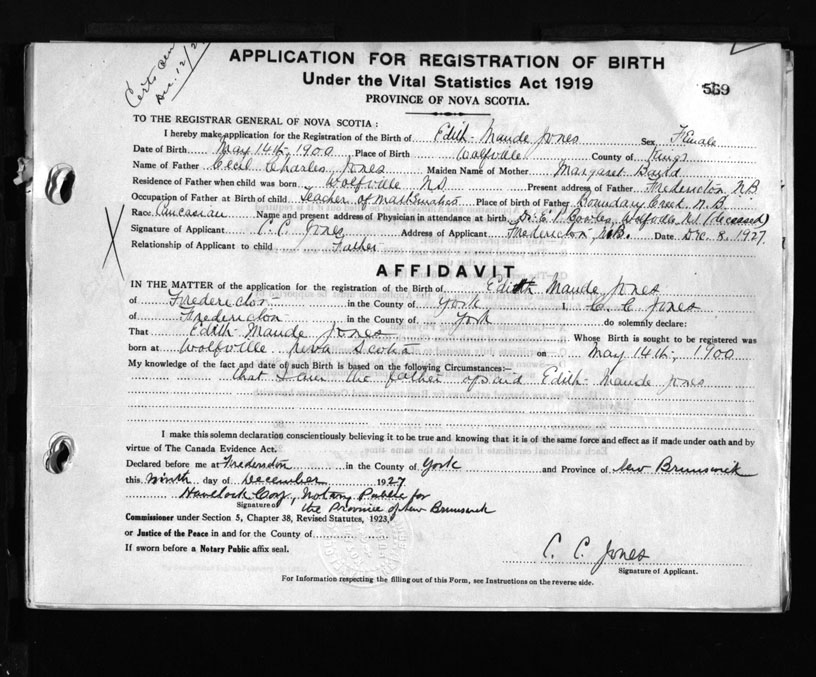 Dec. 12/2
APPLICATION FOR REGISTRATION OF BIRTH
Under the Vital Statistics Act 1919
569
PROVINCE OF NOVA SCOTIA.
TO THE REGISTRAR GENERAL OF NOVA SCOTIA:
I hereby make application for the Registration of the Birth of Edith Maude Jones Sex Female
Date of Birth May 14th, 1900 Place of Birth Wolfville County of Kings
Name of Father Cecil Charles Jones Maiden Name of Mother Margaret
Residence of Father when child was born Wolfville N.S. Present address of Father Fredericton N.B.
Occupation of Father at Birth of child Teacher of mathematics Place of birth of Father Boundary Creek N.B.
Race Caucasian Name and present address of Physician in attendance at birth Dr. E. P. Bowles, Wolfville N.S. (deceased)
Signature of Applicant C. C. Jones Address of Applicant Fredericton N.B. Date Dec. 8, 1927.
Relationship of Applicant to child Father
AFFIDAVIT
IN THE MATTER of the application for the registration of the Birth of Edith Maude Jones
of Fredericton in the County of York I, C. C. Jones
of Fredericton in the County of York do solemnly declare:
That Edith Maude Jones Whose Birth is sought to be registered was
born at Wolfville Nova Scotia on May 14th, 1900
My knowledge of the fact and date of such Birth is based on the following Circumstances:—
that I am the father of said Edith Maude Jones
I make this solemn declaration conscientiously believing it to be true and knowing that it is of the same force and effect as if made under oath and by
virtue of The Canada Evidence Act.
Declared before me at Fredericton in the County of York and Province of New Brunswick
this Ninth day of December 1927
Havelock Coy, Notary Public for
Signature of the Province of New Brunswick
Commissioner under Section 5, Chapter 38, Revised Statutes, 1923,
or Justice of the Peace in and for the County of
If sworn before a Notary Public affix seal.
C. C. Jones
Signature of Applicant.
For Information respecting the filling out of this Form, see Instructions on the reverse side.